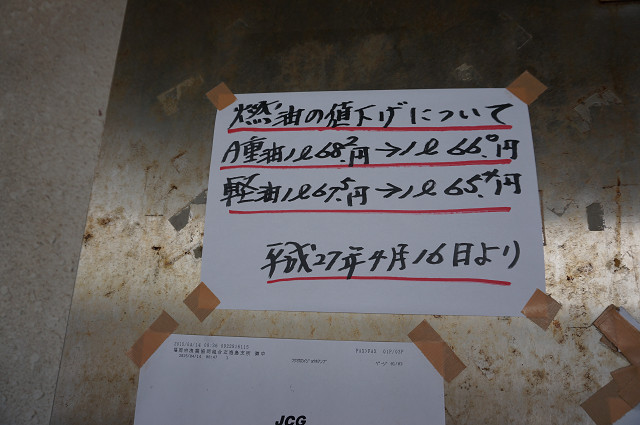 燃油の値下げについて
A重油1ℓ68.²円→1ℓ66.⁰円
軽油1ℓ67.⁵円→1ℓ65.⁴円
平成27年4月16日より
2015/04/14
JCG